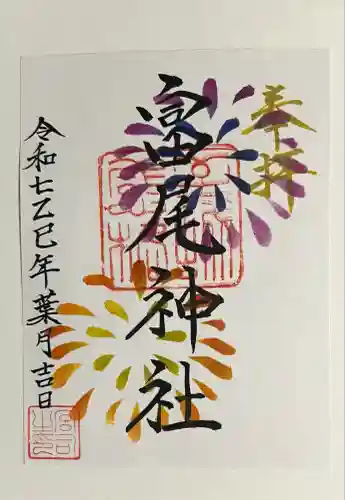 奉拝
富尾神社
令和七乙巳年葉月吉日